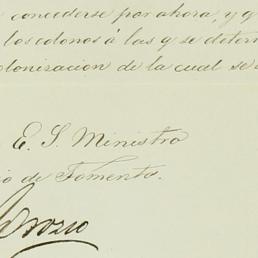 concederse por ahora, y q
los colonos á las q se deter
olonizacion de la cual se
E. S. Ministro
io de Fomento.
Orozco